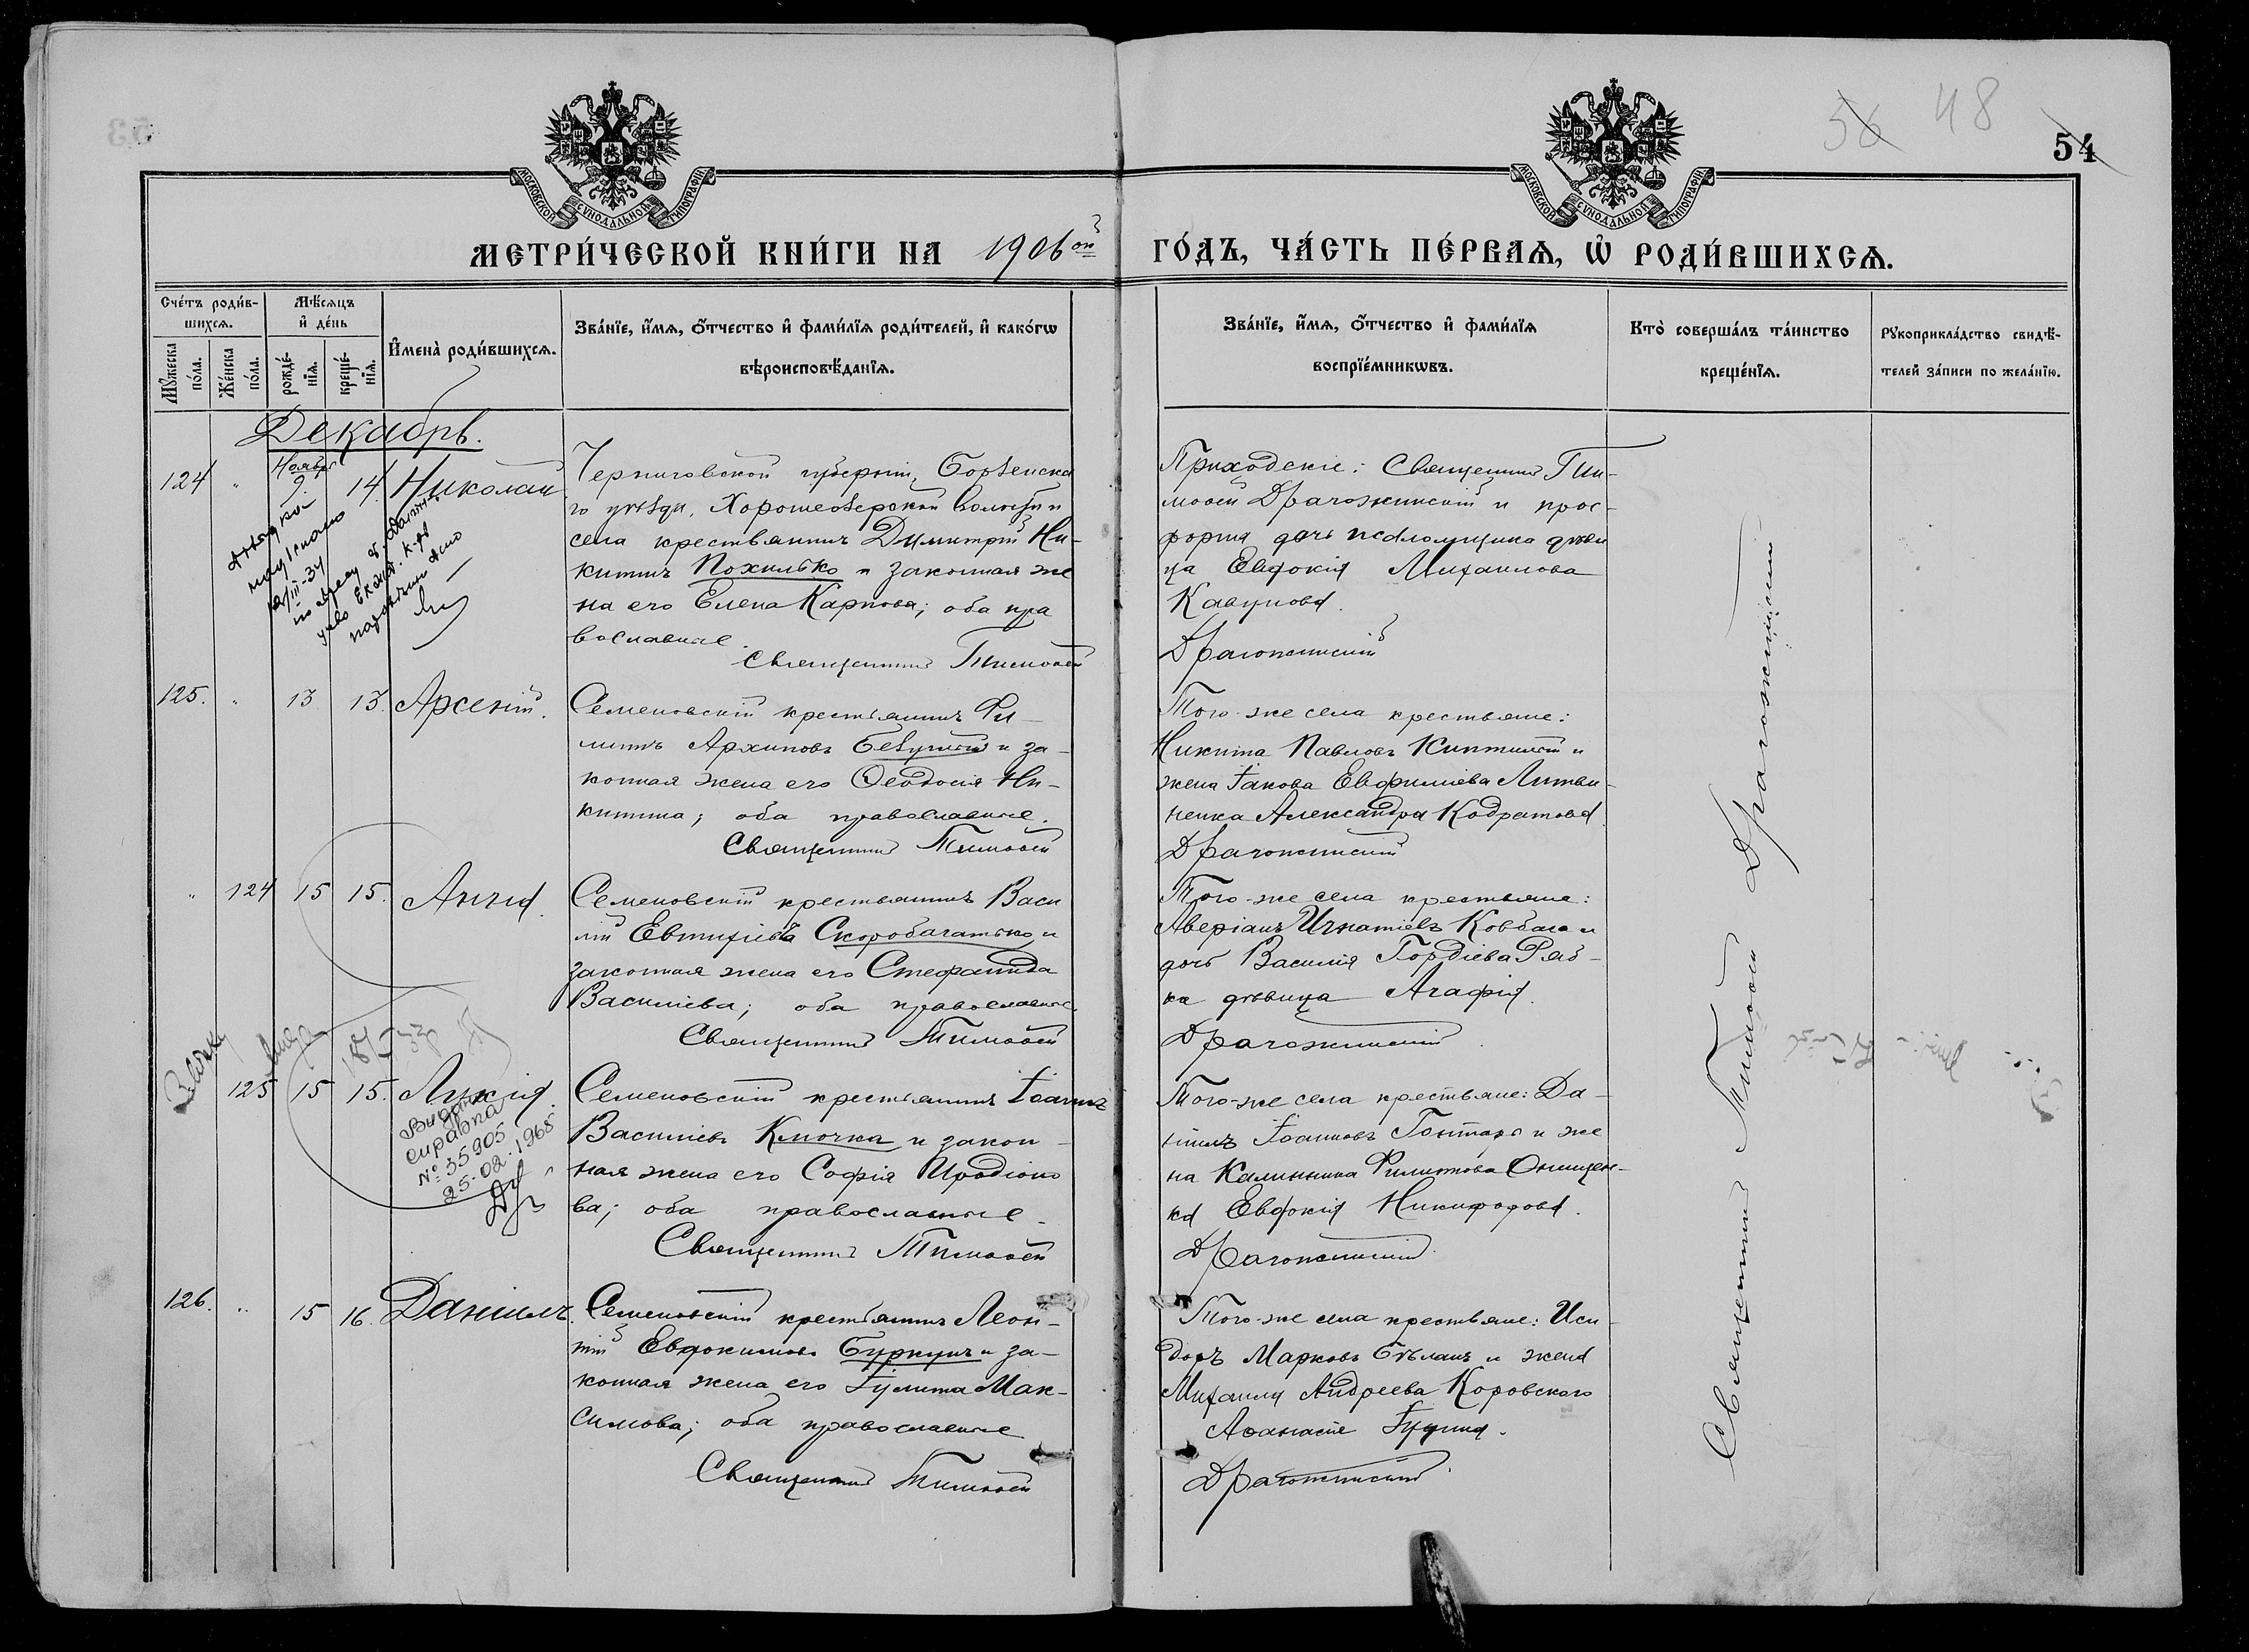 56 48
54
МОСКОВСКОЙ СѴНОДАЛЬНОЙ ТИПОГРАФІИ
МОСКОВСКОЙ СѴНОДАЛЬНОЙ ТИПОГРАФІИ
МЕТРИ́ЧЕСКОЙ КНИ́ГИ НА 1906ой ГО́ДЪ, ЧА́СТЬ ПЕ́РВАѦ, Ѡ҆ РОДИ́ВШИХСѦ.
Сче́тъ роди́в-
шихсѧ.
Мѣ́сѧцъ
и҆ де́нь
Мꙋ́жеска
по́ла.
Же́нска
по́ла.
рожде́-
нїѧ.
креще́-
нїѧ.
И҆мена̀ роди́вшихсѧ.
Зва́нїе, и҆́мѧ, ѻ҆́тчество и҆ фами́лїѧ роди́телей, и҆ како́гѡ
вѣроисповѣ́данїѧ.
Зва́нїе, и҆́мѧ, ѻ҆́тчество и҆ фами́лїѧ
воспрїе́мникѡвъ.
Кто̀ соверша́лъ та́инство
креще́нїѧ.
Рꙋкоприкла́дство свидѣ́-
телей за́писи по жела́нїю.
Декабрь.
124 " Ноября 9. 14. Николай
Черниговской губерніи, Борзенска
го уѣзда, Хорошеозерской волости
села крестьянинъ Димитрій Ни-
китинъ Похилько и законная же
на его Елена Карпова; оба пра
вославные.
Священникъ Тимоѳей
Приходскіе: Священникъ Тим-
моѳей Драгожинскій и прос-
форня дочь псаломщика дѣви
ца Евдокія Михаилова
Кавунова.
Драгожинскій
12/III-34
125. " 13 13. Арсеній.
Семеновскій крестьянинъ Фи-
липъ Архиповъ Безуглый и за-
конная жена его Ѳеодосія Ни-
китина; оба православные.
Священникъ Тимоѳей
Того-же села крестьяне:
Никита Павловъ Киптилый и
жена Іакова Евфиміева Литви-
ненка Александра Кодратова.
Драгожинскій
" 124 15 15. Анна.
Семеновскій крестьянинъ Васи
лій Евтихіевъ Скоробагатько и
законная жена его Стефанида
Василіева; оба православные
Священникъ Тимоѳей
Того-же села крестьяне:
Аверіанъ Игнатіевъ Ковбаса и
дочь Василія Гордіева Ряб-
ка дѣвица Агафія.
Драгожинскій
125 15 15. Лукія.
Видана
справка
№ 35905
25-02-1968
Семеновскій крестьянинъ Іоаннъ
Василіевъ Клочка и закон-
ная жена его Софія Иродіоно
ва; оба православные.
Священникъ Тимоѳей
Того-же села крестьяне: Да-
ніилъ Іоанновъ Гонтарь и же
на Калинника Филиппова Онищен-
ка Евдокія Никифорова.
Драгожинскій
126. " 15 16. Даніилъ.
Семеновскій крестьянинъ Леон-
тій Евдокимовъ Буркунъ и за-
конная жена его Іулита Мак-
симова; оба православные
Священникъ Тимоѳей
Того-же села крестьяне: Иси-
доръ Марковъ Бѣланъ и жена
Михаила Андреева Коровского
Аѳанасіе Ірина.
Драгожинскій
Священникъ Тимоѳей Драгожинскій